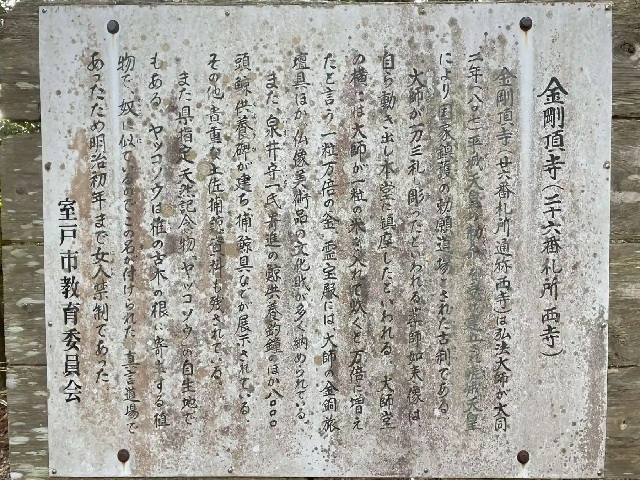 金剛頂寺(二十六番札所 西寺)
金剛頂寺(廿六番札所通称西寺)は弘法大師が大同
二年(八〇七)平城天皇の勅
により国家鎮護の勅願道場とされた古刹である
大師が一刀三礼で彫ったといわれる薬師如来像は
自ら動き出し本堂に鎮座したといわれる。大師堂
の横には大師が一粒の米を入れて炊くと万倍に増え
たと言う一粒万倍の釜、霊宝殿には、大師の金銅旅
壇具ほか仏像美術品の文化財が多く納められている。
また、泉井守一氏寄進の鯨供養釣鐘のほか八〇〇〇
頭鯨供養碑が建ち、捕鯨具などが展示されている。
その他貴重な土佐捕鯨資料も残されている。
また県指定天然記念物「ヤッコソウ」の自生地で
もある。ヤッコソウは椎の古木の根に寄生する植
物で、奴に似ているのでこの名が付けられた。真言道場で
あったため明治初年まで女人禁制であった
室戸市教育委員会